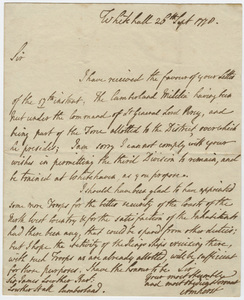 Whitehall 26th Sept 1778.
Sir
I have received the favour of your Letter
of the 17th instant. The Cumberland Militia having been
put under the Command of Lt General Lord Percy, and
being part of the Force allotted to the District over which
he presides, I am sorry I cannot comply with your
wishes in permitting the third Division to remain, and
be trained at Whitehaven as you propose.
I should have been glad to have appointed
some more Troops for the better security of the Coasts of the
North West Country & for the satisfaction of the Inhabitants
had there been any, that could be spared from other duties;
but I hope the Activity of the Kings Ships cruizing there,
with such Troops as are already allotted, will be sufficient
for those purposes. I have the honor to be Sir
your most obedient
and most humble servant
Sir James Lowther Bart.
Amherst
Lowther Hall Cumberland.